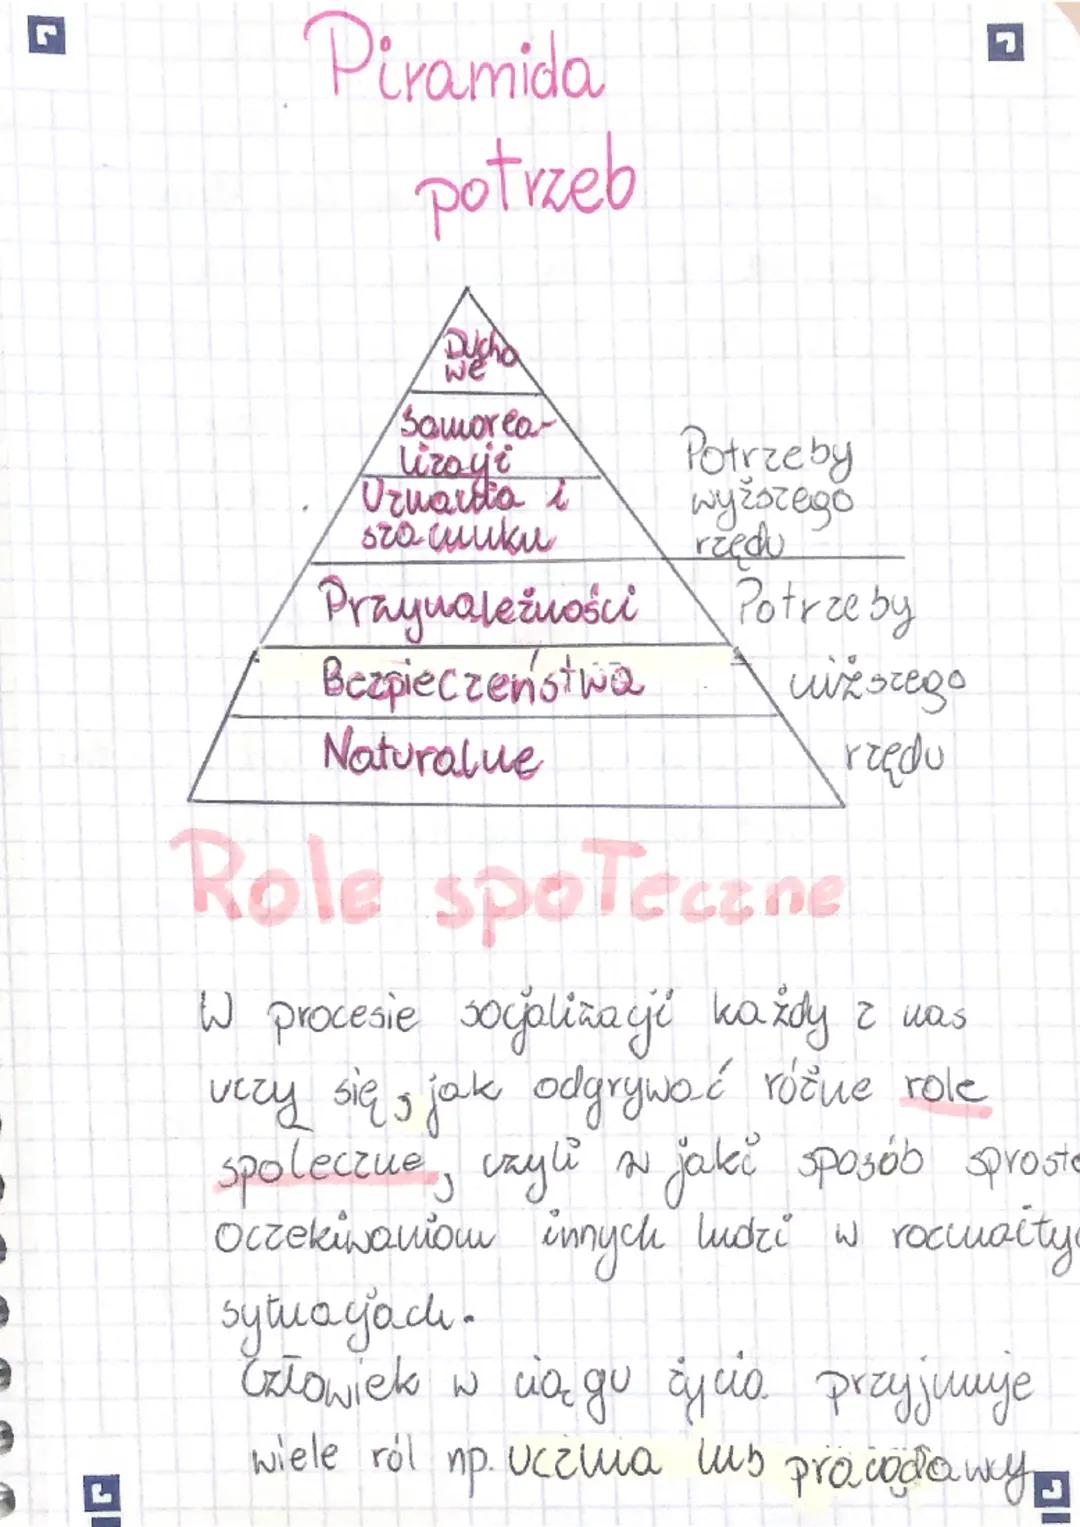 Piramida
potrzeb
Ducho
we
Samorea-
lizacji
Uznania i
szacunku
Potrzeby
wyższego
rzędu
Przynależności
Bezpieczeństwa
Naturalne
Potrzeby
niższego
rzędu
Role społeczne
W procesie socjalizacji każdy z nas
uczy się, jak odgrywać różne role
społeczne, czyli w jaki sposób sprosta
oczekiwaniom innych ludzi w rozmaityc
sytuacjach.
Człowiek w ciągu życia przyjmuje
wiele ról np. ucznia lub pracodawcy